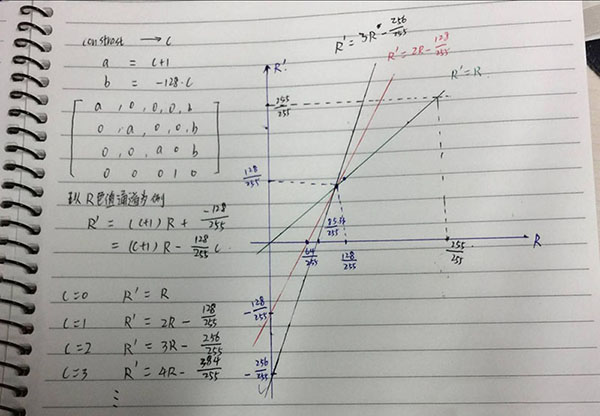 constrast → C
a = C+1
b = -128·C
a, 0, 0, 0, b
0, a, 0, 0, b
0, 0, a 0 b
0 0 0 1 0
以R色值通道为例
R' = (C+1) R + -128/255
= (C+1) R - 128/255 C
C=0 R' = R
C=1 R' = 2R - 128/255
C=2 R' = 3R - 256/255
C=3 R' = 4R - 384/255
⋮
R' = 3R - 256/255
R' = 2R - 128/255
R' = R
R'
255/255
128/255
85.4/255
64/255
128/255
255/255
R
-128/255
-256/255